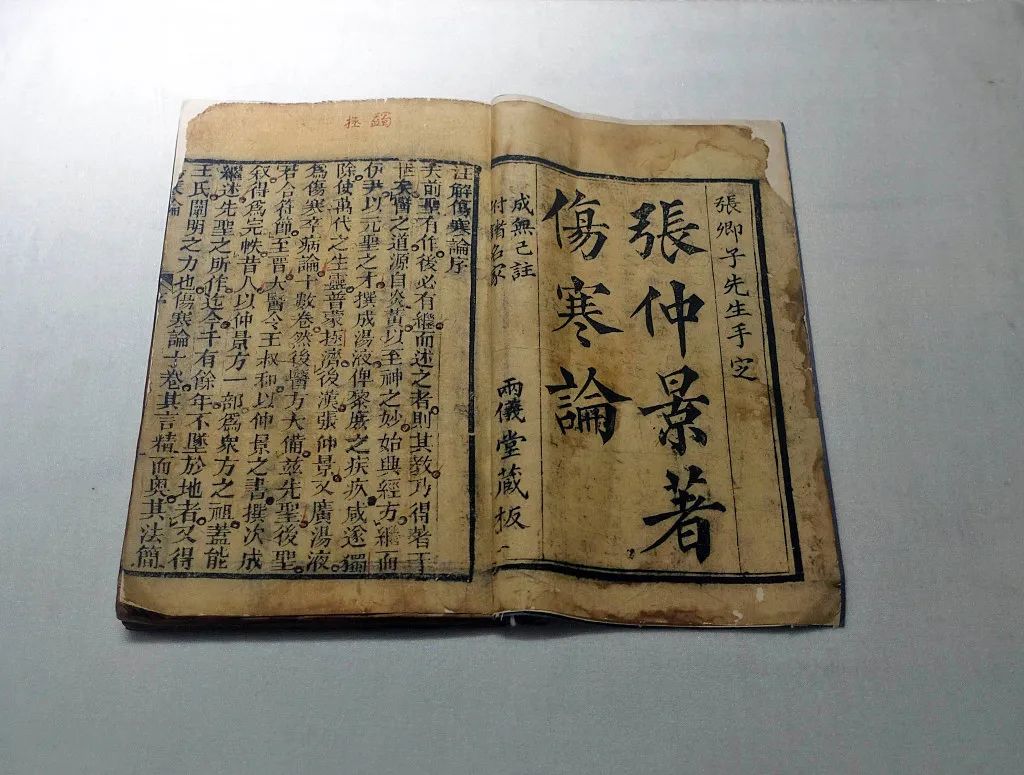 張卿子先生手定
張仲景著
傷寒論
成無己註
附諸名家
兩儀堂藏板
蠲
拯
注解傷寒論序
夫前聖有作。後必有繼而述之者。則其教乃得著于
世矣。醫之道源自炎黃。以至神之妙。始興經方。繼而
伊尹以元聖之才。撰成湯液。俾黎庶之疾疚。咸遂獨
除。使萬代之生靈。普蒙極濟。後漢張仲景。又廣湯液。
為傷寒卒病論十數卷。然後醫方大備。茲先聖後聖。
若合符節。至晉大醫令王叔和。以仲景之書。撰次成
叙。得為完帙。昔人以仲景方一部。為衆方之祖。蓋能
繼述先聖之所作。迄今千有餘年。不墜於地者。又得
王氏闡明之力也。傷寒論十卷。其言精而奧。其法簡